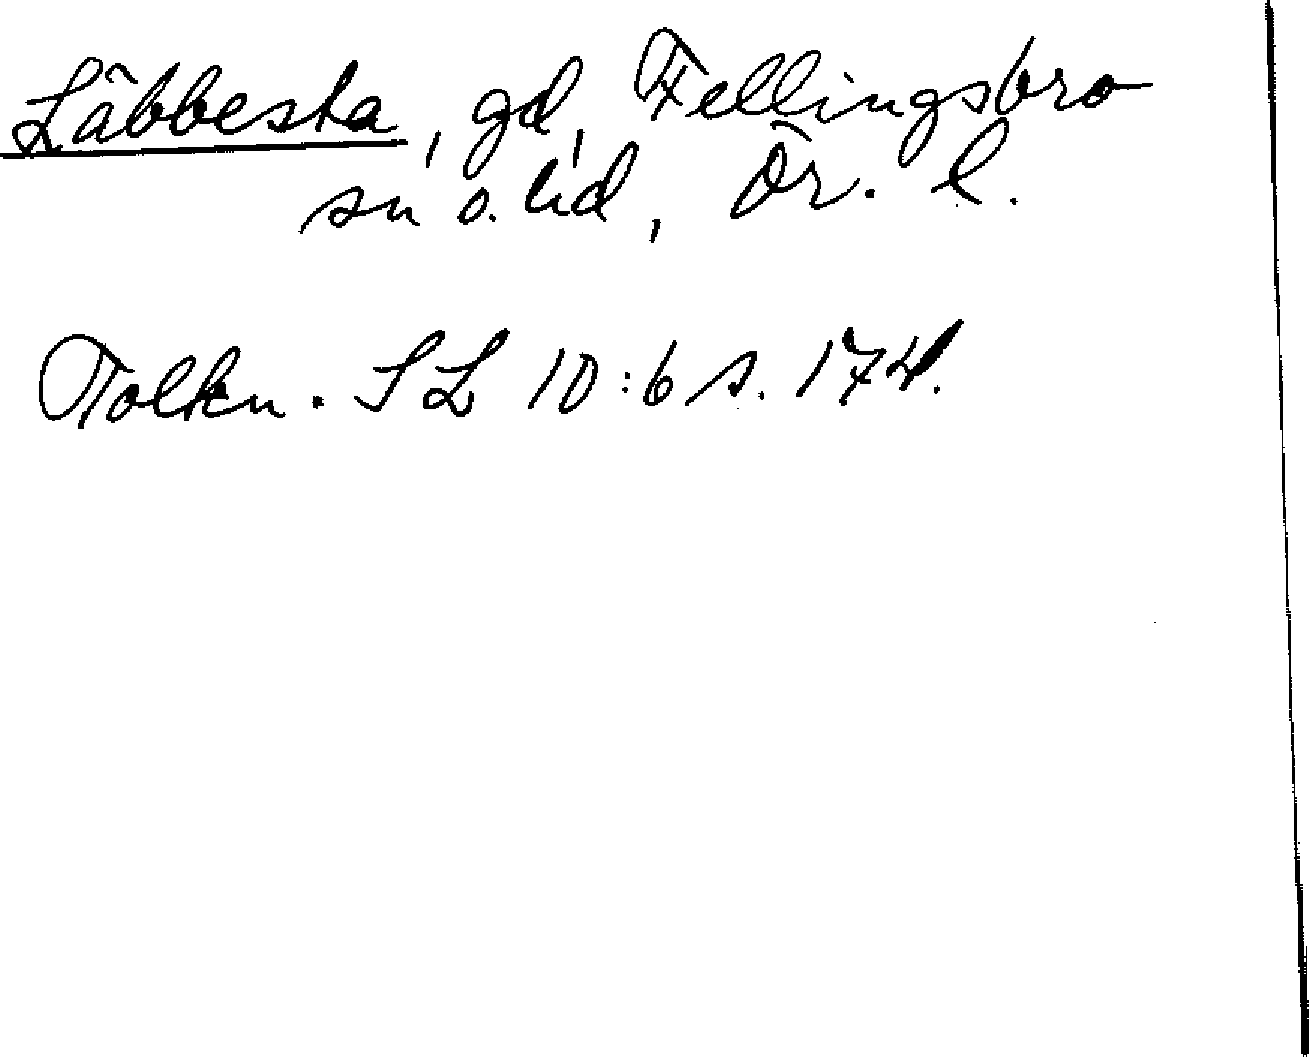 Läbbesta, gd, Fellingsbro
sn o. hd, Ör. l.
Tolkn. SL 10:6 s. 174.